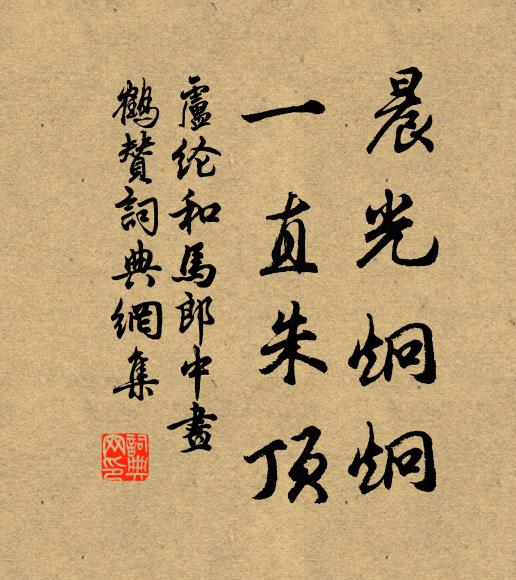 晨光炯炯
一直朱顶
盧纶和馬郎中畫
鶴赞詞典網集
詞典
网印